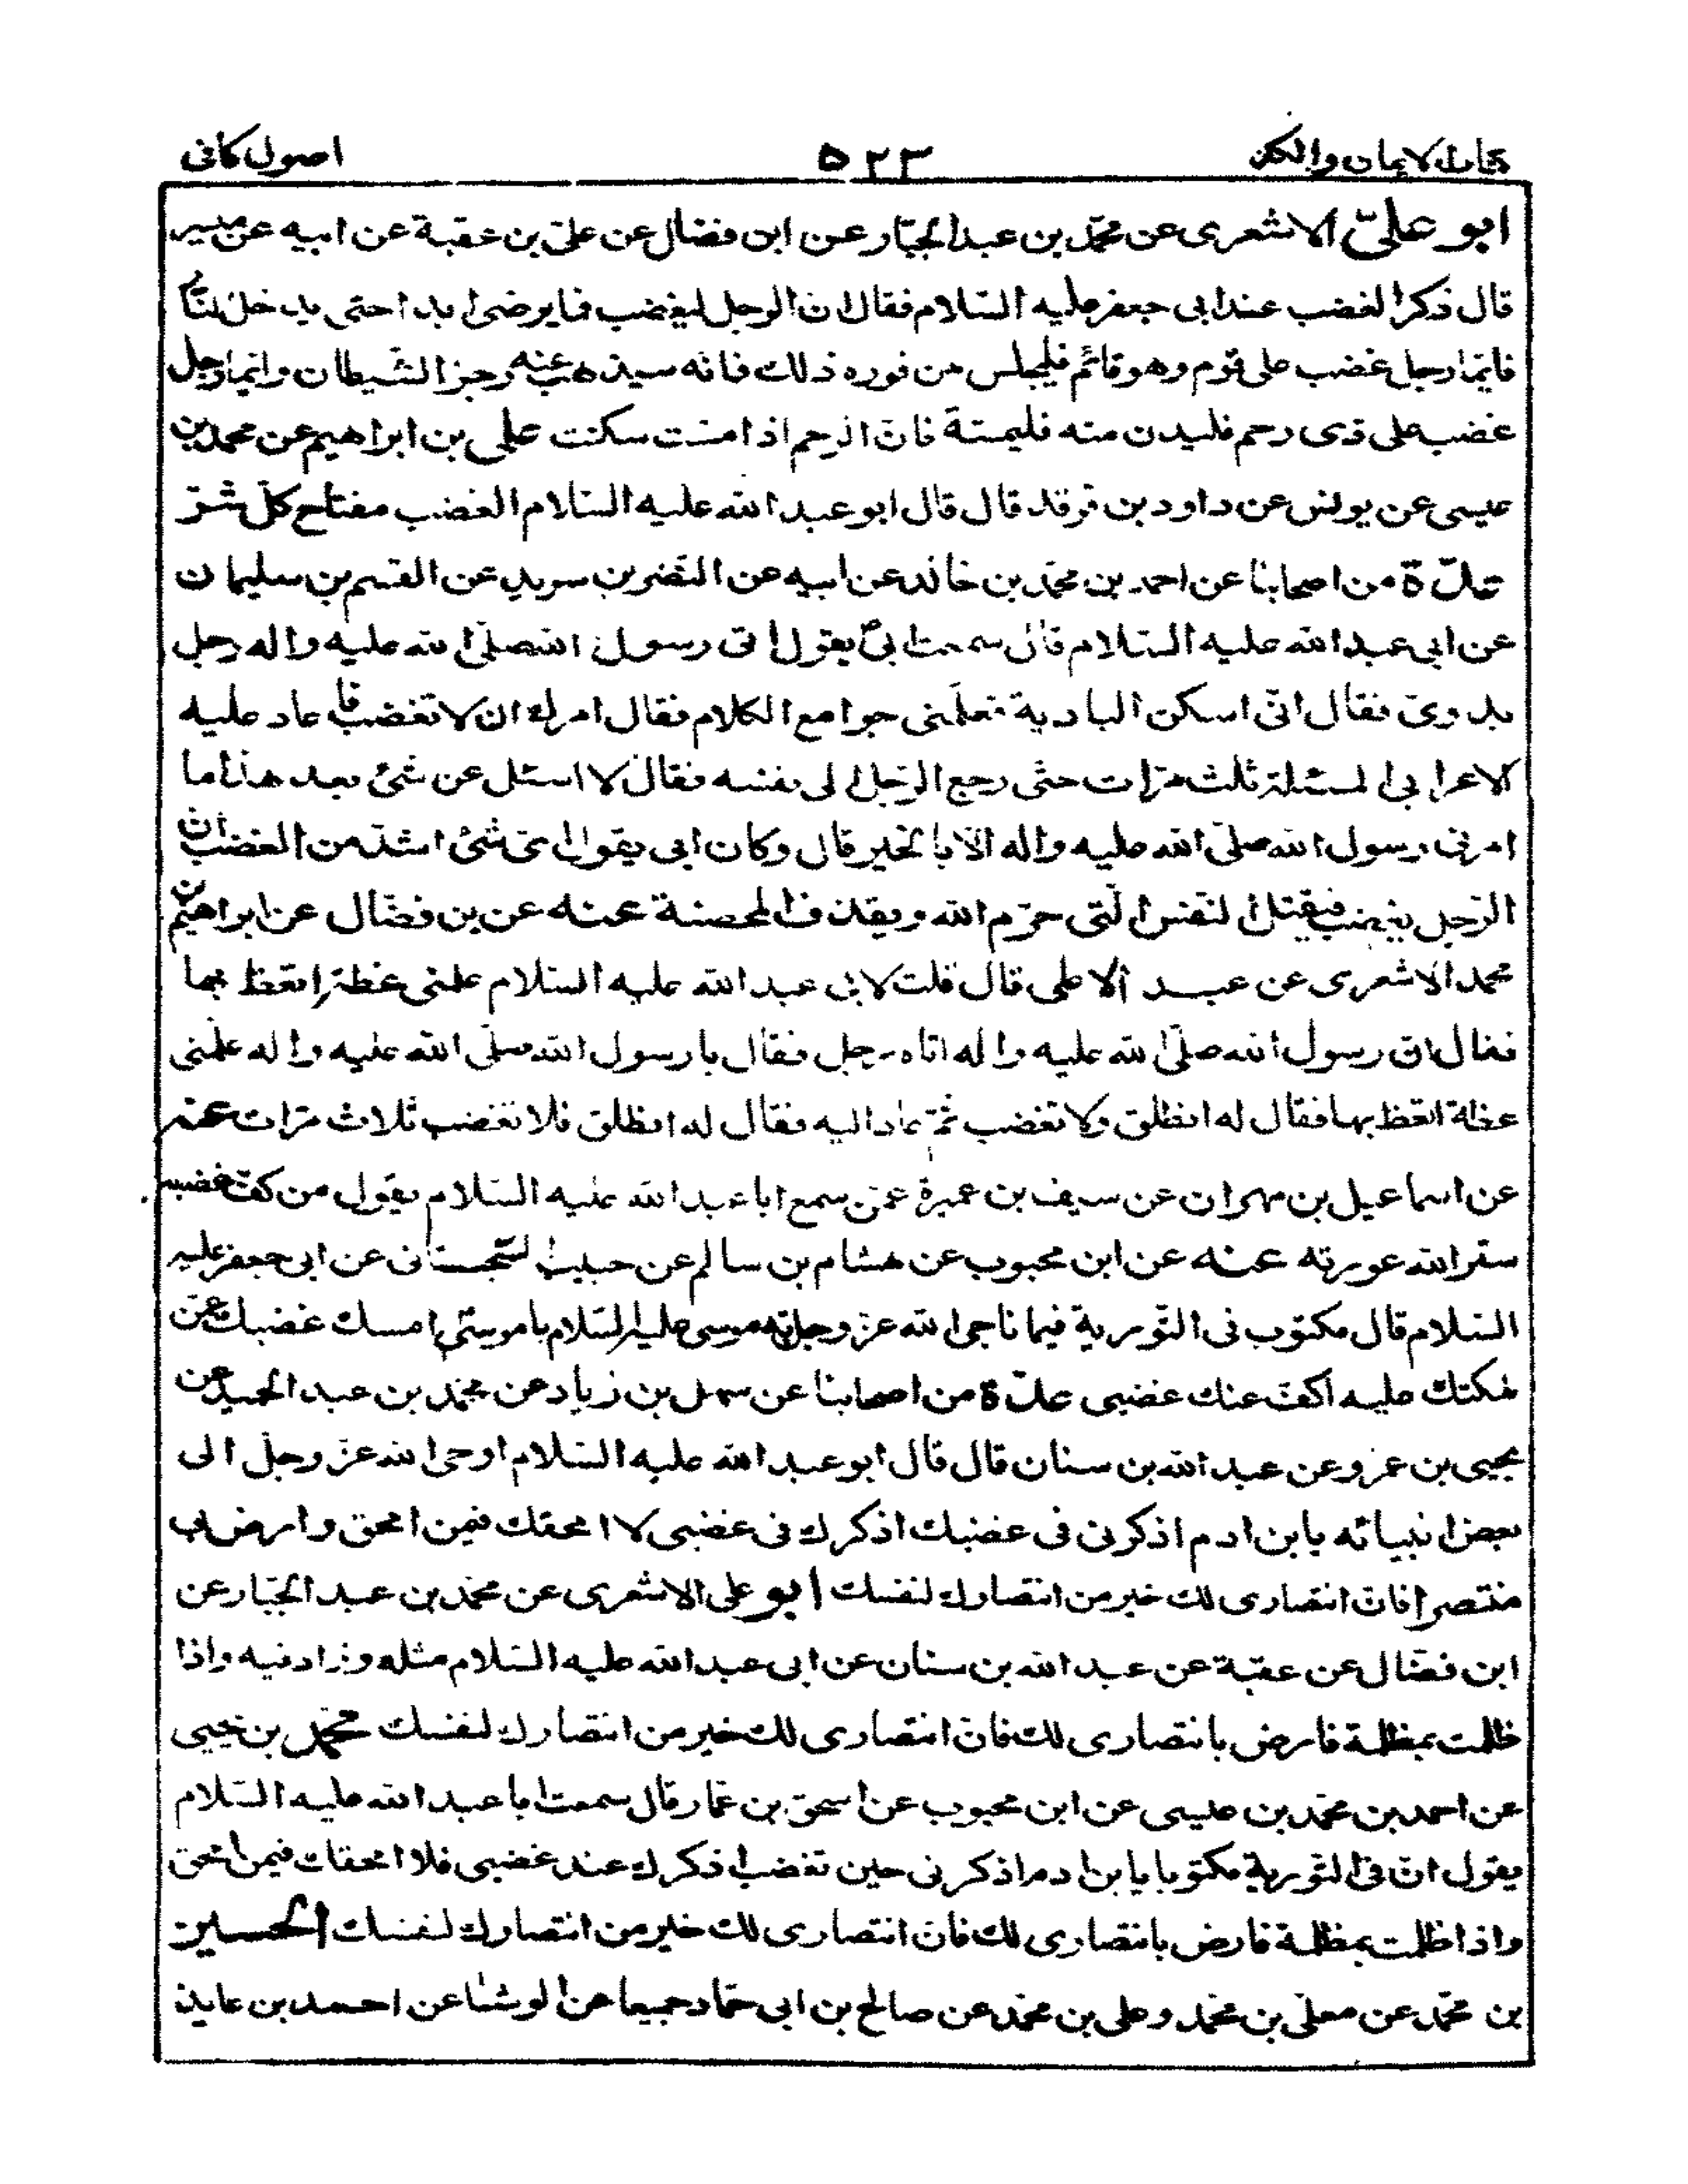 كتاب الايمان والكفر
٥٢٣
اصول كافى
ابو علىّ الاشعرى عن محمّد بن عبد الجبّار عن ابن فضّال عن علىّ بن عقبة عن ابيه عن ميسر
قال ذكر الغضب عند ابى جعفر عليه السّلام فقال ان الرجل ليغضب فما يرضى ابدا حتى يدخل النّار
فايّما رجل غضب على قوم وهو قائم فليجلس من فوره ذلك فانّه سيذهب عنه رجز الشّيطان وايّما رجل
غضب على ذى رحم فليدن منه فليمسّة فانّ الرحم اذا مسّت سكنت على بن ابراهيم عن محمد بن
عيسى عن يونس عن داود بن فرقد قال قال ابو عبد الله عليه السّلام الغضب مفتاح كلّ شرّ
عدّة من اصحابنا عن احمد بن محمّد بن خالد عن ابيه عن النّضر بن سويد عن القسم بن سليمان
عن ابى عبد الله عليه السّلام قال سمعت ابى يقول اتى رسول الله صلّى الله عليه واله رجل
بدوىّ فقال انّى اسكن البادية فعلّمنى جوامع الكلام فقال امرك ان لا تغضب فاعاد عليه
الاعرابى المسئلة ثلث مرّات حتّى رجع الرّجل الى نفسه فقال لا اسئل عن شئ بعد هذا ما
امرنى رسول الله صلّى الله عليه واله الّا بالخير قال وكان ابى يقول اىّ شئ اشدّ من الغضب ان
الرّجل يغضب فيقتل النفس الّتى حرّم الله ويقذف المحصنة عنه عن بن فضّال عن ابراهيم بن
محمد الاشعرى عن عبد الاعلى قال قلت لابى عبد الله عليه السّلام علمنى عظة اتعظ بها
فقال انّ رسول الله صلّى الله عليه واله اتاه رجل فقال يا رسول الله صلّى الله عليه واله علّمنى
عظة اتعظ بها فقال له انطلق ولا تغضب ثمّ عاد اليه فقال له انطلق فلا تغضب ثلاث مرّات عنه
عن اسماعيل بن مهران عن سيف بن عميرة عمّن سمع ابا عبد الله عليه السّلام يقول من كفّ غضبه
ستر الله عورته عنه عن ابن محبوب عن هشام بن سالم عن حبيب السّجستانى عن ابى جعفر عليه
السّلام قال مكتوب فى التّورية فيما ناجى الله عزّ وجلّ به موسى عليه السّلام يا موسى امسك غضبك عمّن
ملكتك عليه اكفّ عنك غضبى عدّة من اصحابنا عن سهل بن زياد عن محمّد بن عبد الحميد عن
يحيى بن عمرو عن عبد الله بن سنان قال قال ابو عبد الله عليه السّلام اوحى الله عزّ وجلّ الى
بعض انبيائه يا بن ادم اذكرنى فى غضبك اذكرك فى غضبى لا امحقك فيمن امحق وارض بى
منتصرا فانّ انتصارى لك خير من انتصارك لنفسك ابو على الاشعرى عن محمّد بن عبد الجبّار عن
ابن فضّال عن عقبة عن عبد الله بن سنان عن ابى عبد الله عليه السّلام مثله وزاد فيه واذا
ظلمت بمظلمة فارض بانتصارى لك فانّ انتصارى لك خير من انتصارك لنفسك محمّد بن يحيى
عن احمد بن محمّد بن عيسى عن ابن محبوب عن اسحق بن عمّار قال سمعت ابا عبد الله عليه السّلام
يقول انّ فى التّورية مكتوبا يا بن ادم اذكرنى حين تغضب اذكرك عند غضبى فلا امحقك فيمن امحق
واذا ظلمت بمظلمة فارض بانتصارى لك فانّ انتصارى لك خير من انتصارك لنفسك الحسين
بن محمّد عن معلّى بن محمّد وعلى بن محمّد عن صالح بن ابى حمّاد جميعا عن الوشّا عن احمد بن عايذ